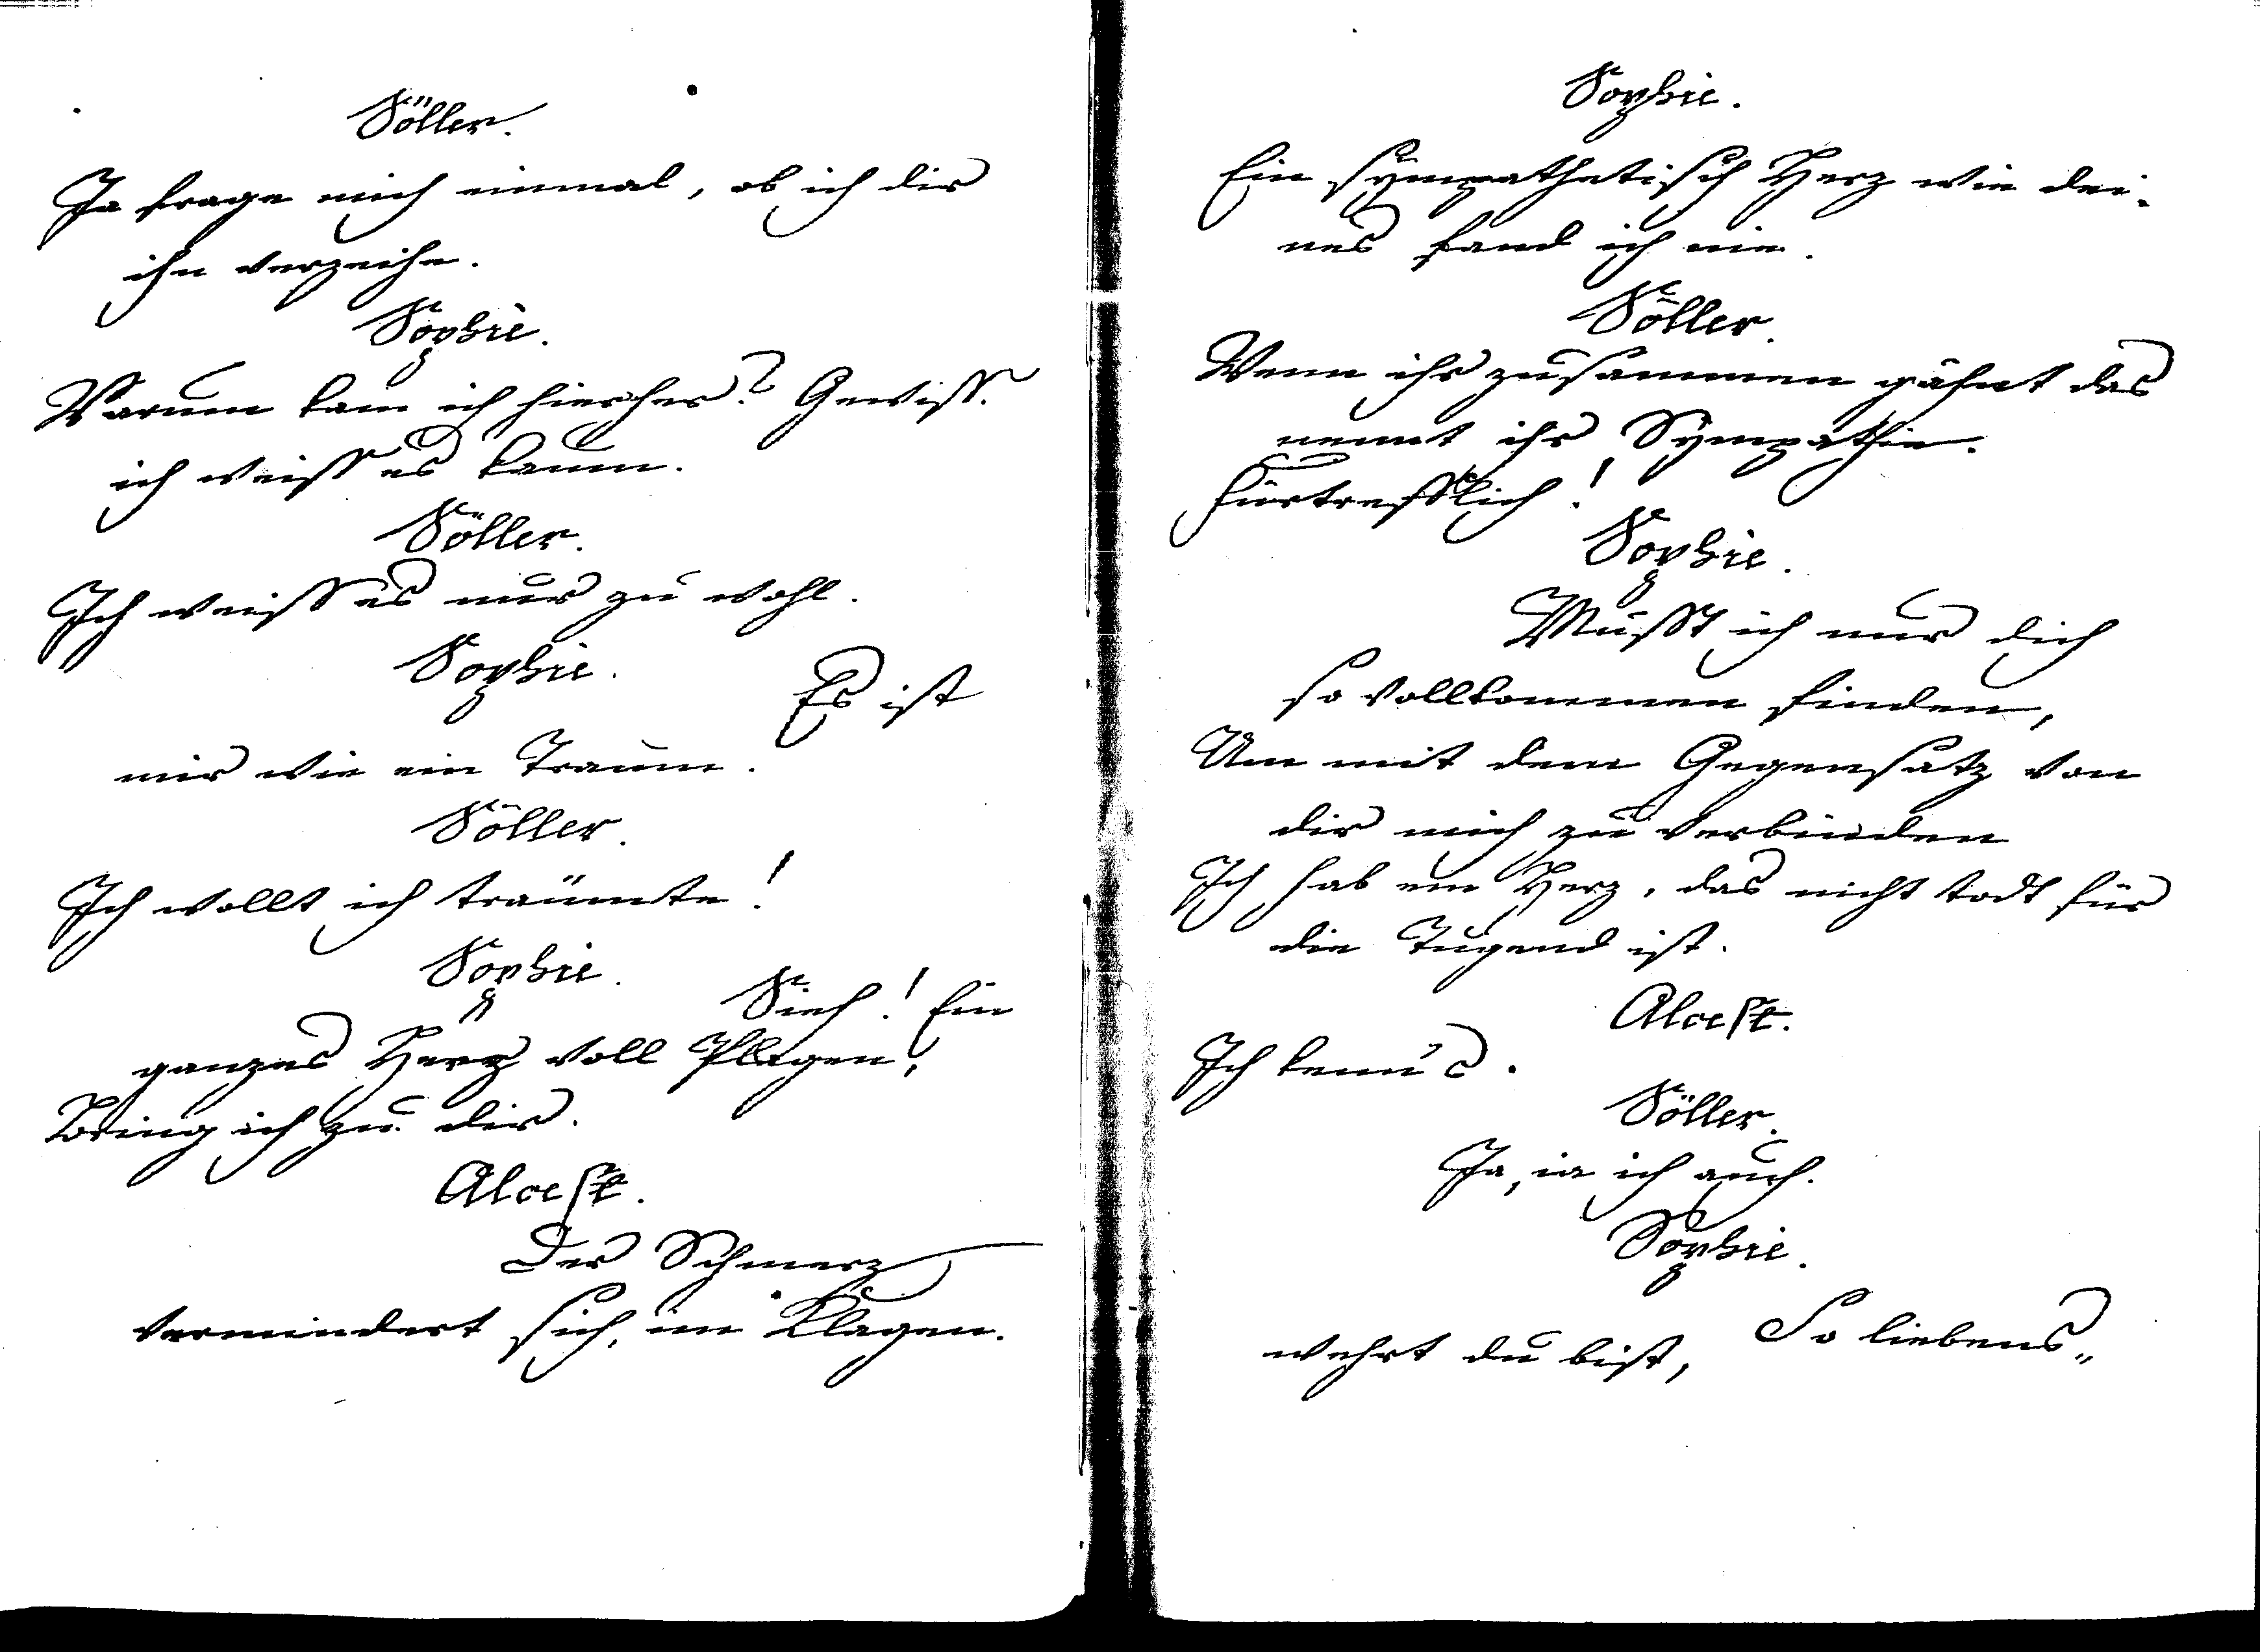 Söller.
Ja frage mich einmal, ob ich dir
ihn verzeihe.
Sophie.
Warum kam ich hierher? Gewiss.
ich weiss es kaum.
Söller.
Ich weiss es nur zu wohl.
Sophie.
Es ist
mir wie ein Traum.
Söller.
Ich wollt ich träumte!
Sophie.
Sieh! Ein
ganzes Herz voll Plagen,
Bring ich zu dir.
Alcest.
Der Schmerz
vermindert sich, im Klagen.
Sophie.
Ein sympathetisch Herz wie dei-
nes fand ich nie.
Söller.
Wenn ihr zusammen gähnt das
nennt ihr Sympathie.
Fürtrefflich!
Sophie.
Musst ich nur dich
so vollkommen finden,
Um mit dem Gegensatz von
dir mich zu verbinden
Ich hab ein Herz, das nicht todt für
die Tugend ist.
Alcest.
Ich kenns.
Söller.
Ja, ia ich auch.
Sophie.
So liebens„
wehrt du bist,